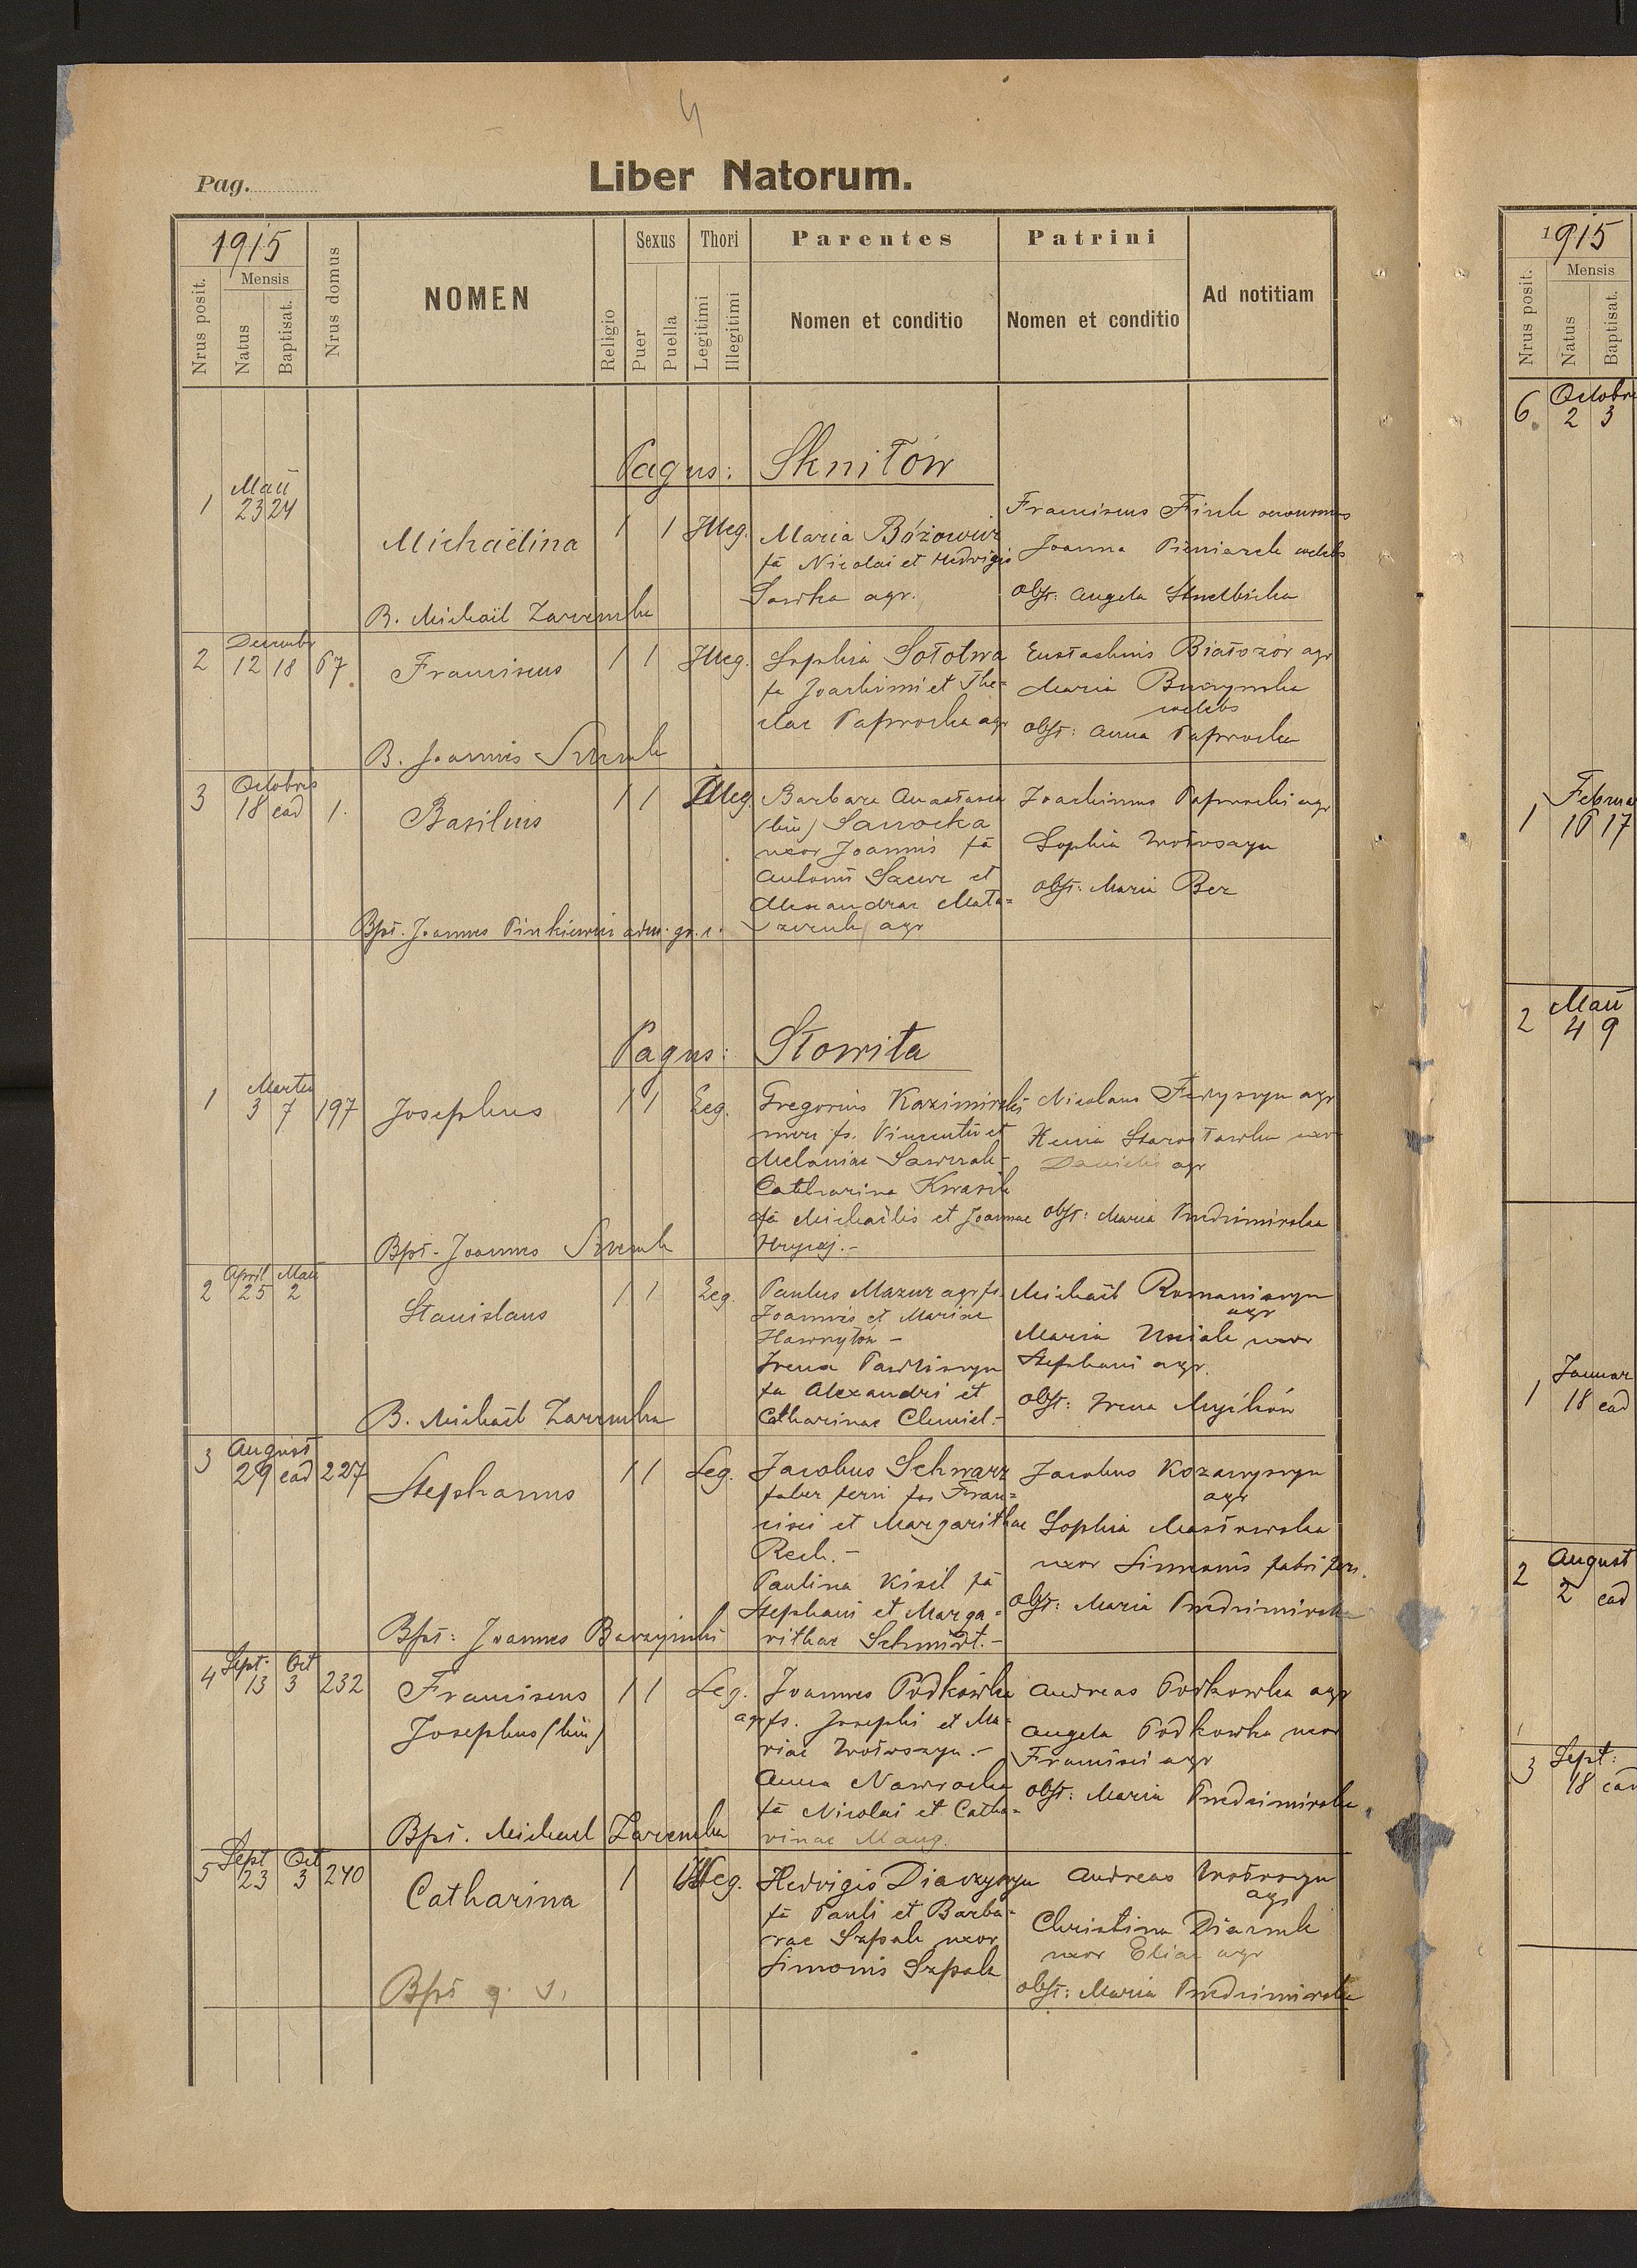 4
Pag.
Liber Natorum.
1915
Nrus posit.
Mensis
Natus
Baptisat.
Nrus domus
NOMEN
Religio
Sexus
Puer
Puella
Thori
Legitimi
Illegitimi
Parentes
Nomen et conditio
Patrini
Nomen et conditio
Ad notitiam
Pagus: Skniłów
Maii
1 23 24
Michaëlina 1 1 Illeg.
Maria Bóżowicz
fa Nicolai et Hedvigis
Sawka agr.
Franciscus Fink
Joanna
obst: Angela
B. Michaël Zaremba
Decembr
2 12 18 67
Franciscus 1 1 Illeg.
Sophia Sołotwa
fa Joachimi et The=
clae Paprocka agr
Eustachius Białozór agr
Maria Buczynska
caelebs
obst: Anna Paprocka
B. Joannes
Octobris
3 18 ead 1.
Basilius 1 1 Illeg
Barbara Anastasia
(bin) Sanocka
uxor Joannis fa
Antonii et
Alexandrae Mata=
agr
Joachimus Paprocki agr
Sophia Wołoszyn
obst: Maria Ber
Bpt. Joannes Pinkiewicz adm. gr. c.
Pagus: Stowita
Martii
1 3 7 197
Josephus 1 1 Leg.
Gregorius Kazimirski
fs. Vincentii et
Melaniae Sawczak-
Catharina Kwasik
fa Michaëlis et Joannae
Hrycaj.-
Nicolaus agr
Xenia uxor
Danielis agr
obst: Maria
Bpt. Joannes
April Maii
2 25 2
Stanislaus 1 1 Leg.
Paulus Mazur agr fs.
Joannis et Mariae
Hawryłów -
Irena Pawliszyn
fa Alexandri et
Catharinae Chmiel.-
Michaël Romaniszyn
agr
Maria uxor
Stephani agr.
obst: Irena
B. Michaël Zaremba
August
3 29 ead 227
Stephanus 1 1 Leg.
Jacobus Schwarz
faber ferri fs Fran=
cisci et Margarithae
Rech.-
Paulina Kisil fa
Stephani et Marga=
rithae Schmidt.-
Jacobus
agr
Sophia
uxor Simeonis fabri ferr.
obst: Maria
Bpt: Joannes
Sept. Oct
4 13 3 232
Franciscus 1 1 Leg.
Josephus (bin)
Joannes Podkówka
agr fs. Josephi et Ma=
riae Wołoszyn.-
Anna Nawrocka
fa Nicolai et Catha=
rinae Mang.
Andreas Podkowka agr
Angela Podkowka uxor
Francisci agr
obst: Maria
Bpt. Michael Zaremba
Sept Oct
5 23 3 240
Catharina 1 Illeg.
Hedvigis Diaczyszyn
fa Pauli et Barba=
rae Szpak uxor
Simonis Szpak
Andreas Wołoszyn
agr
Christina Diaczuk
uxor Eliae agr
obst: Maria
Bpt q. s.
1915
Nrus posit.
Mensis
Natus
Baptisat.
Octobri
6. 2 3
Februa
1 16 17
Maii
2 4 9
Januar
1 18 ead
August
2 2 ead
Sept:
3 18 ead